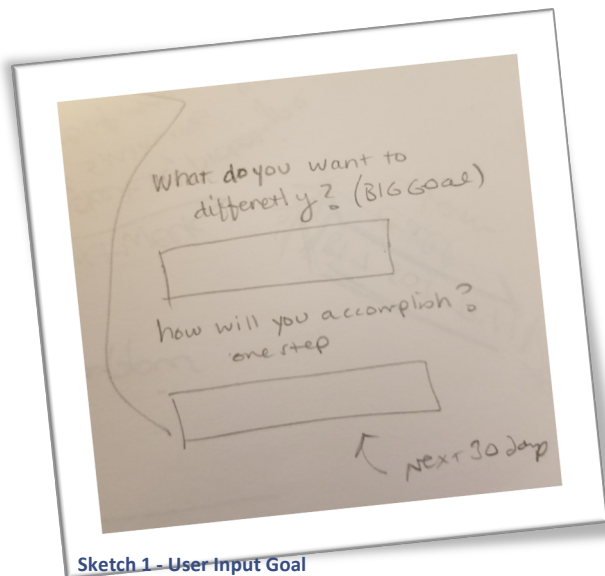 What do you want to
differetly? (BIG GOal)
how will you accomplish?
one step
Next 30 days
Sketch 1 - User Input Goal